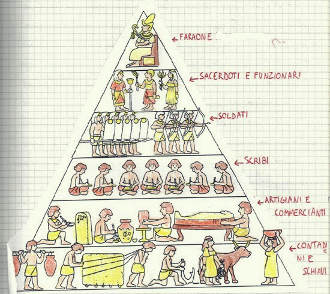 FARAONE
SACERDOTI E FUNZIONARI
SOLDATI
SCRIBI
ARTIGIANI E
COMMERCIANTI
CONTADI
NI E
SCHIAVI